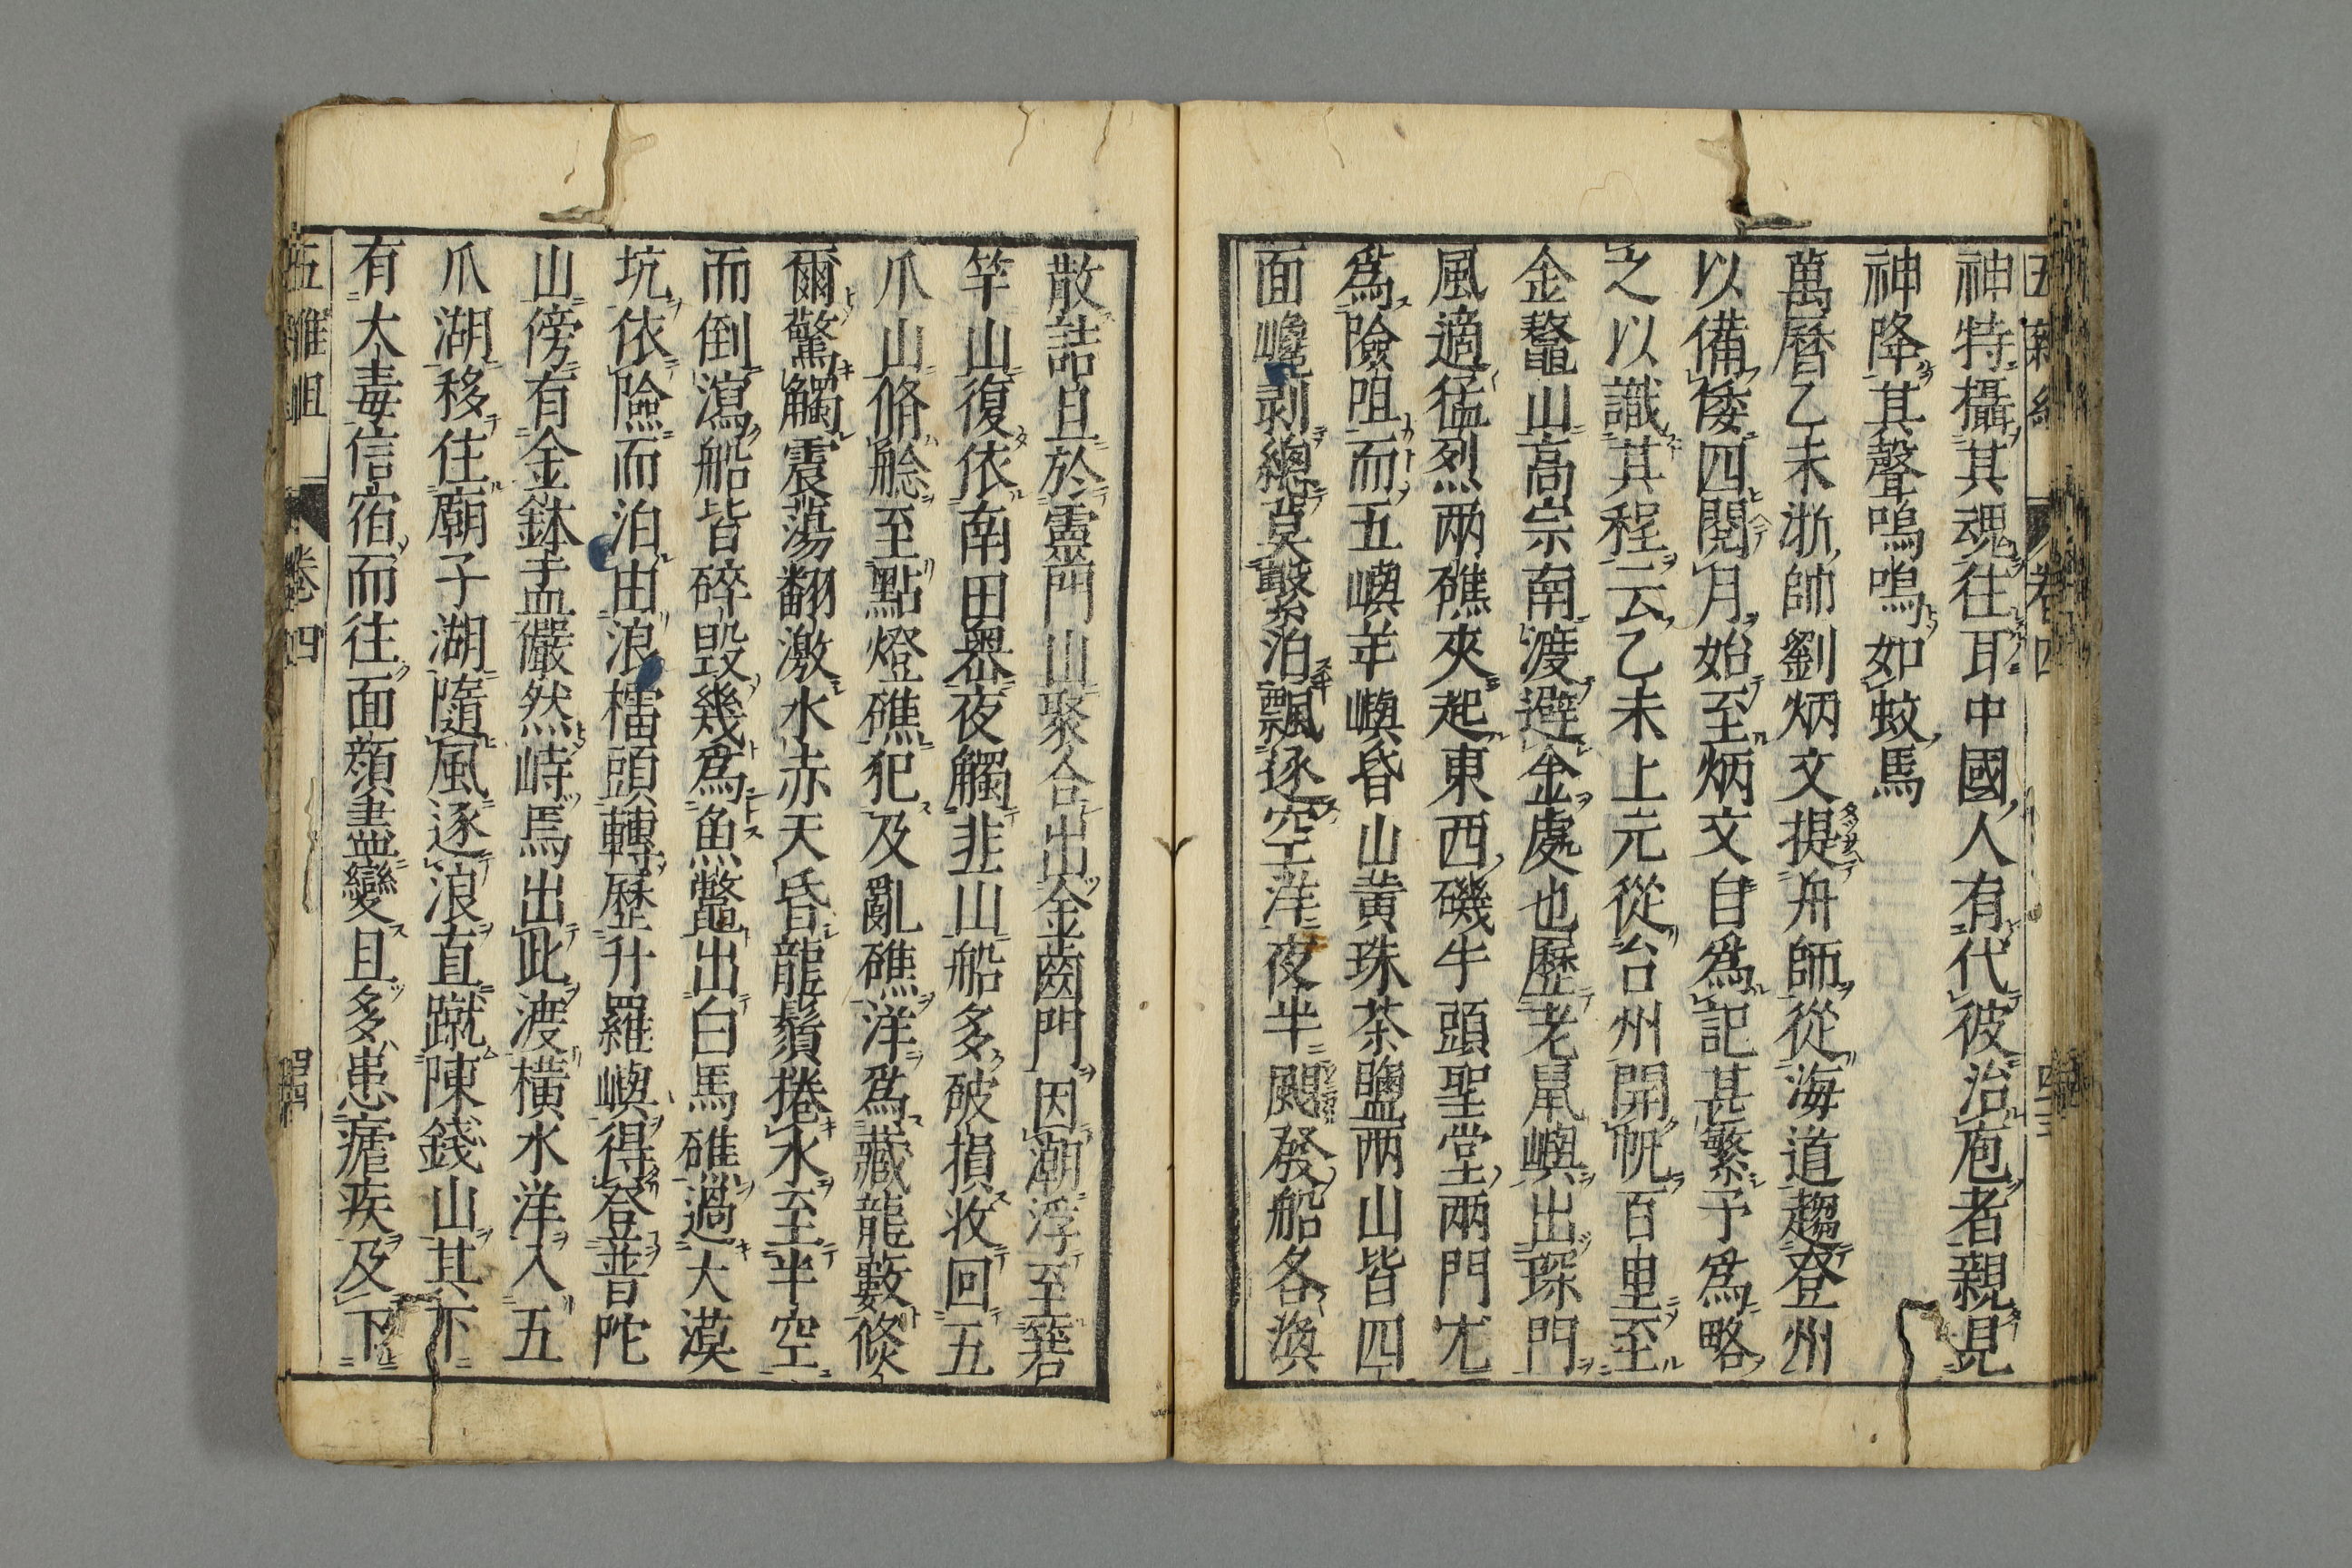 神特攝其魂往耳中國人有代彼治庖者親見
神降其聲嗚嗚如蚊馬
萬曆乙未浙帥劉炳文提舟師從海道趨登州
以備倭四閱月始至炳文自爲記甚繁予爲略
之以識其程云乙未上元從台州開帆百里至
金鼇山高宗南渡避金處也歷老鼠嶼出琛門
風適猛烈兩礁夾起東西磯牛頭聖堂兩門尤
爲險咀而五嶼羊嶼昏山黃珠茶盬兩山皆四
面巉剥總莫繫泊飄逐空洋夜半颶發船各渙
散詰旦於靈門山聚合出金齒門因潮浮至箬
竿山復依南田嶴夜觸韭山船多破損收回五
爪山脩艌至點燈礁犯及亂礁洋爲藏龍藪倐
爾驚觸震蕩翻激水赤天昏龍鬚捲水至半空
而倒瀉船皆碎毀幾爲魚鼈出白馬礁過大漠
坑依險而泊由浪檑頭轉歷升羅嶼得登普陀
山傍有金鉢盂儼然峙焉出此渡橫水洋入五
爪湖移住廟子湖隨風逐浪直蹴陳錢山其下
有大毒信宿而往面顏盡變且多患瘧疾及下
五雜俎 卷四 四四